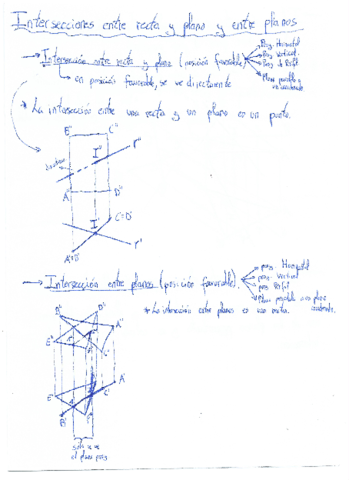 Intersecciones entre recta y plano y entre planos
→ Intersección entre recta y plano (posición favorable)
Proy. Horizontal
Proy. Vertical
Proy. de Perfil
Plano paralelo a
en posición favorable, se ve directamente
* La intersección entre una recta y un plano es un punto.
B'' C''
I'' r''
A'' D''
I' C'≡D'
r'
→ Intersección entre planos (posición favorable)
proy. Horizontal
proy. Vertical
proy. Perfil
Plano paralelo a un plano
* La intersección entre planos es una recta.
B'' D'' A''
E'' F'' C''
A'
E' C'
B' F'
solo se ve
el plano proy